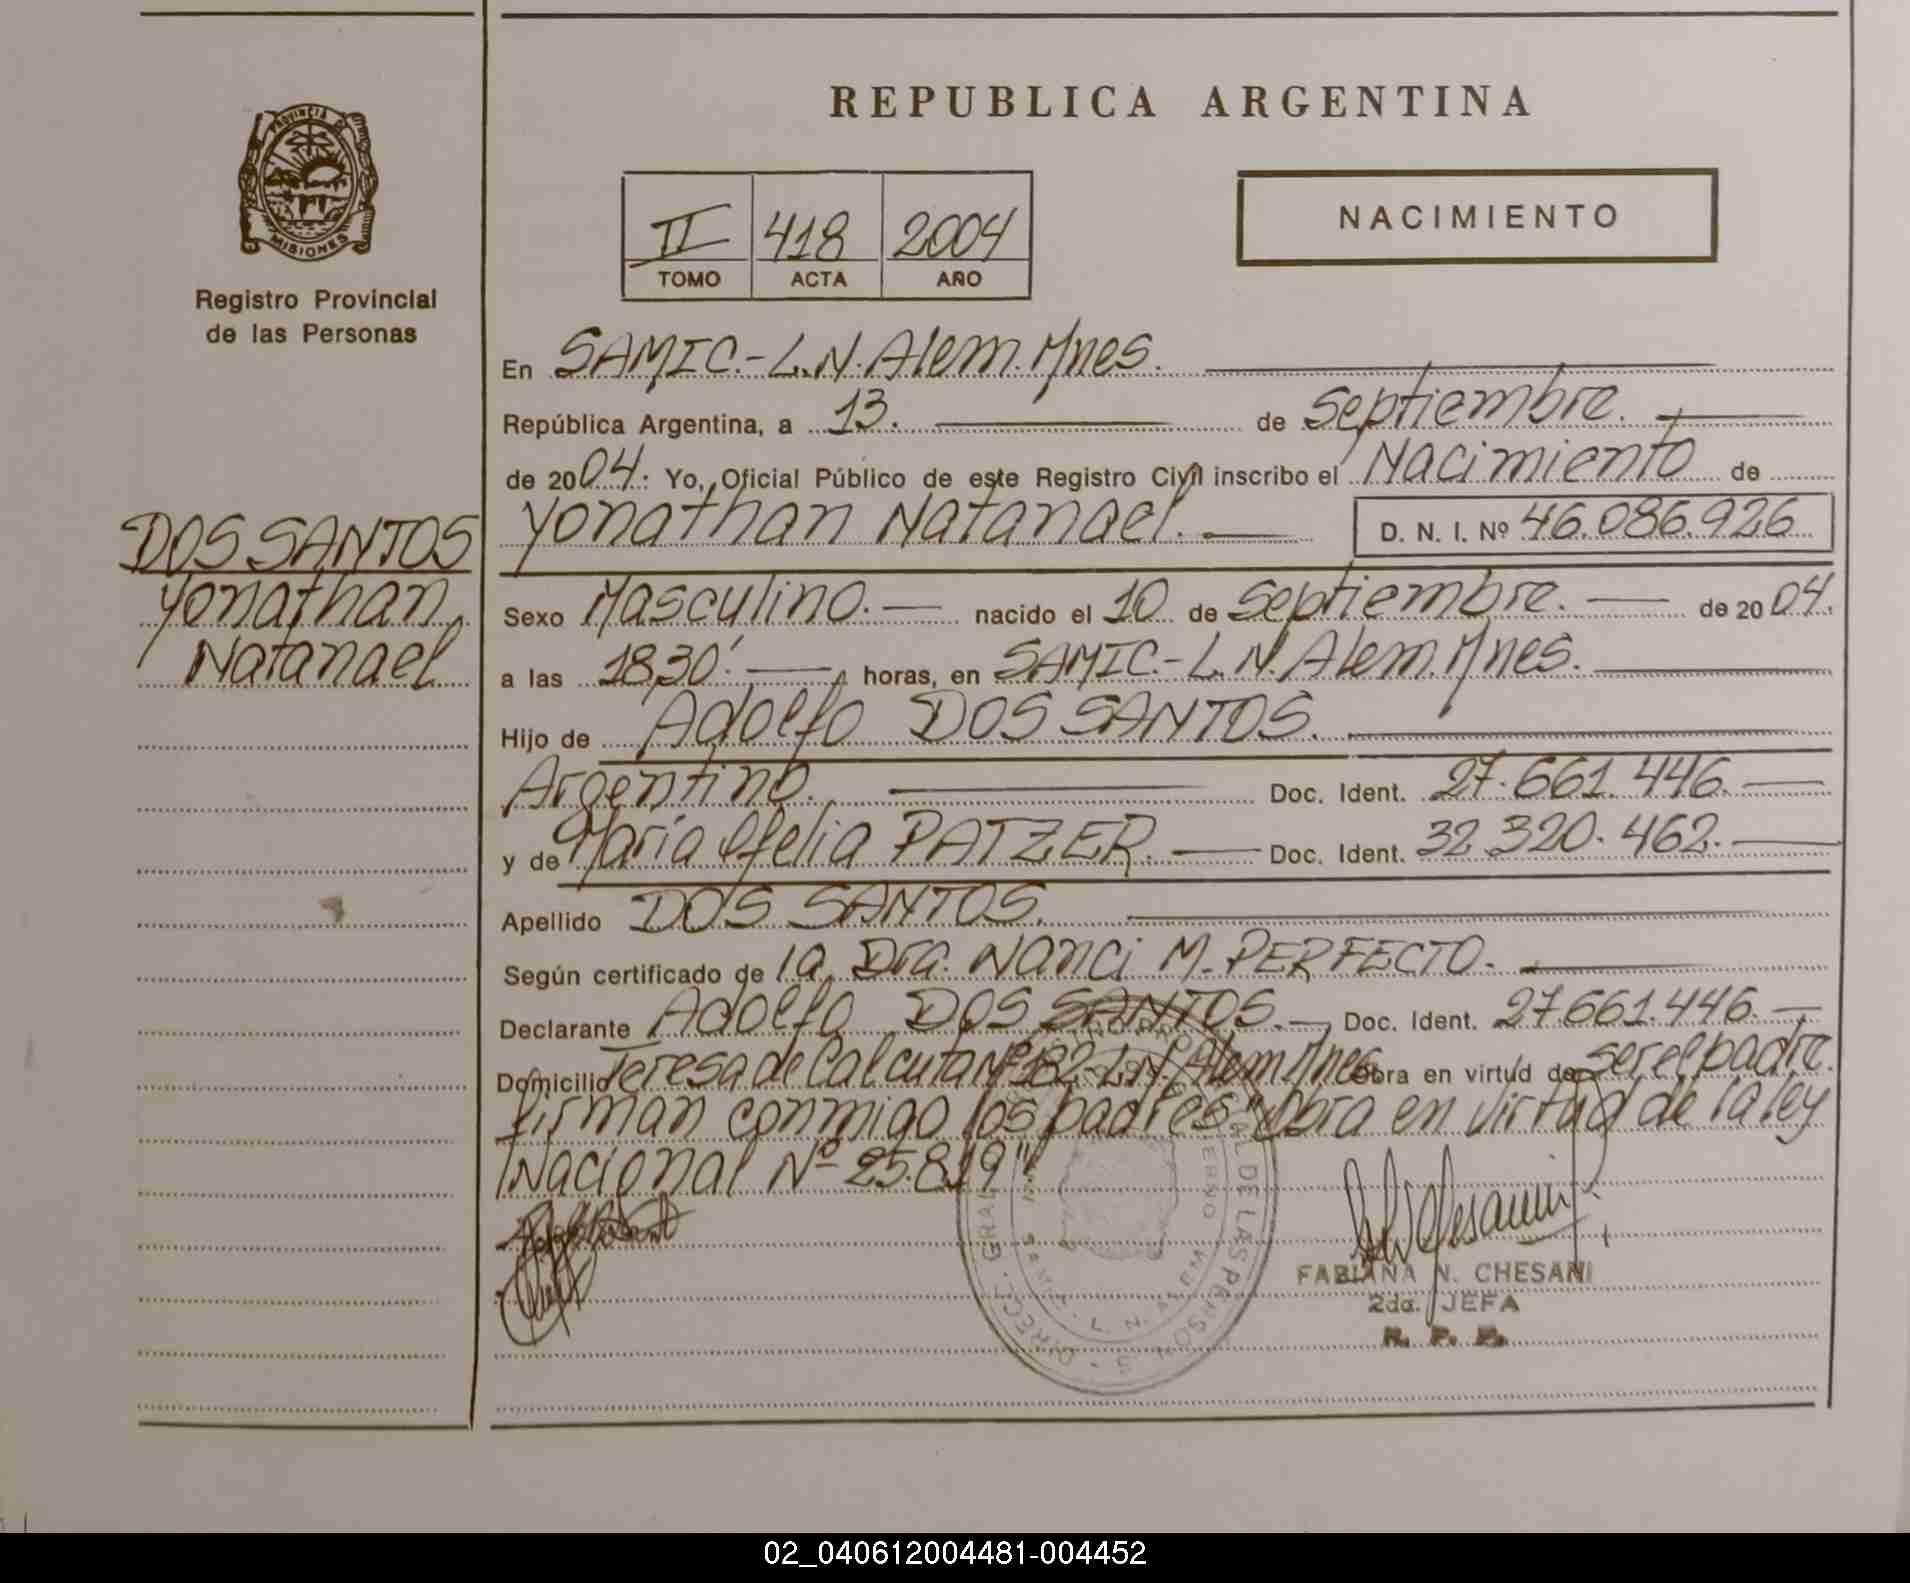 REPUBLICA ARGENTINA
PROVINCIA DE
MISIONES
Registro Provincial
de las Personas
II 418 2004
TOMO ACTA AÑO
NACIMIENTO
En SAMIC.-L.N.Alem.Mnes.
República Argentina, a 13. de Septiembre.
de 2004: Yo, Oficial Público de este Registro Civil inscribo el Nacimiento de
Yonathan Natanael. D. N. I. Nº 46.086.926
DOS SANTOS
Yonathan
Natanael
Sexo Masculino. nacido el 10 de Septiembre. de 2004.
a las 18,30'. horas, en SAMIC.-L.N.Alem.Mnes.
Hijo de Adolfo DOS SANTOS.
Argentino. Doc. Ident. 27.661.446.
y de María Ofelia PATZER. Doc. Ident. 32.320.462.
Apellido DOS SANTOS.
Según certificado de la Dra. Nanci M. PERFECTO.
Declarante Adolfo DOS SANTOS. Doc. Ident. 27.661.446.
Domicilio Teresa de Calcuta Nº 182-L.N.Alem.Mnes obra en virtud de ser el padre.
firman conmigo los padres "obra en virtud de la ley
Nacional Nº 25.819"
FABIANA N. CHESANI
2da. JEFA
R. P. P.
02_040612004481-004452